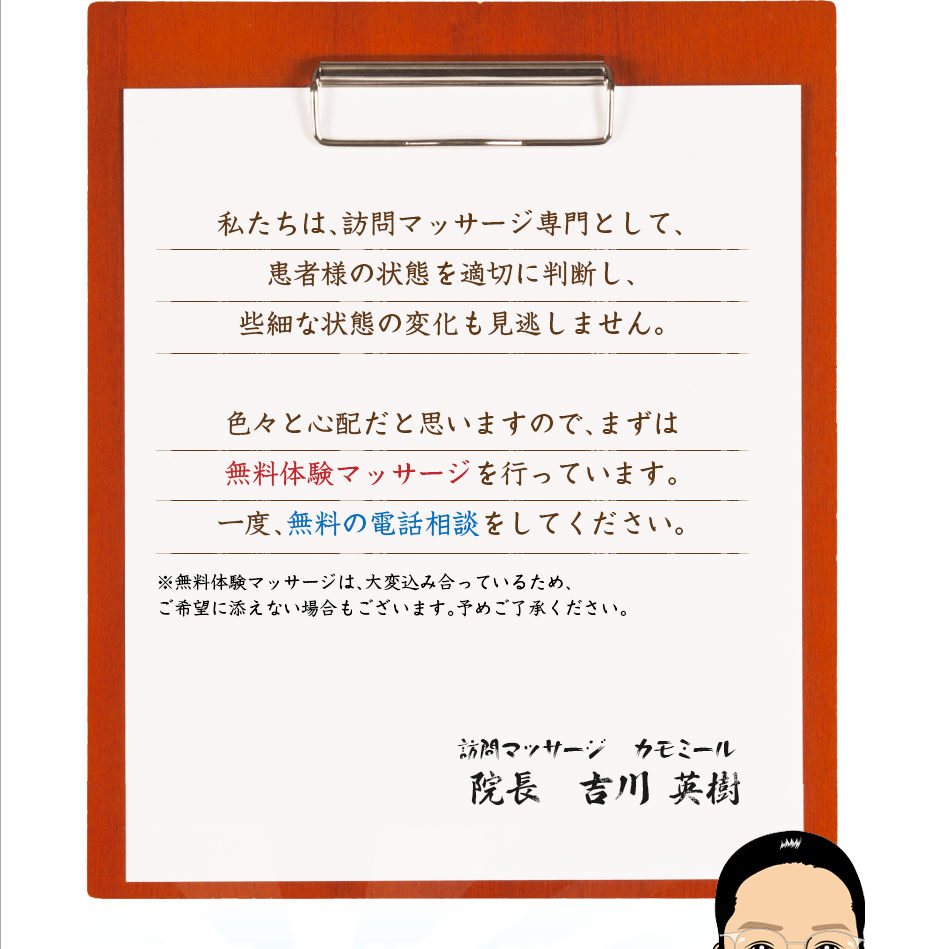 私たちは、訪問マッサージ専門として、
患者様の状態を適切に判断し、
些細な状態の変化も見逃しません。
色々と心配だと思いますので、まずは
無料体験マッサージを行っています。
一度、無料の電話相談をしてください。
※無料体験マッサージは、大変込み合っているため、
ご希望に添えない場合もございます。予めご了承ください。
訪問マッサージ　カモミール
院長　吉川 英樹